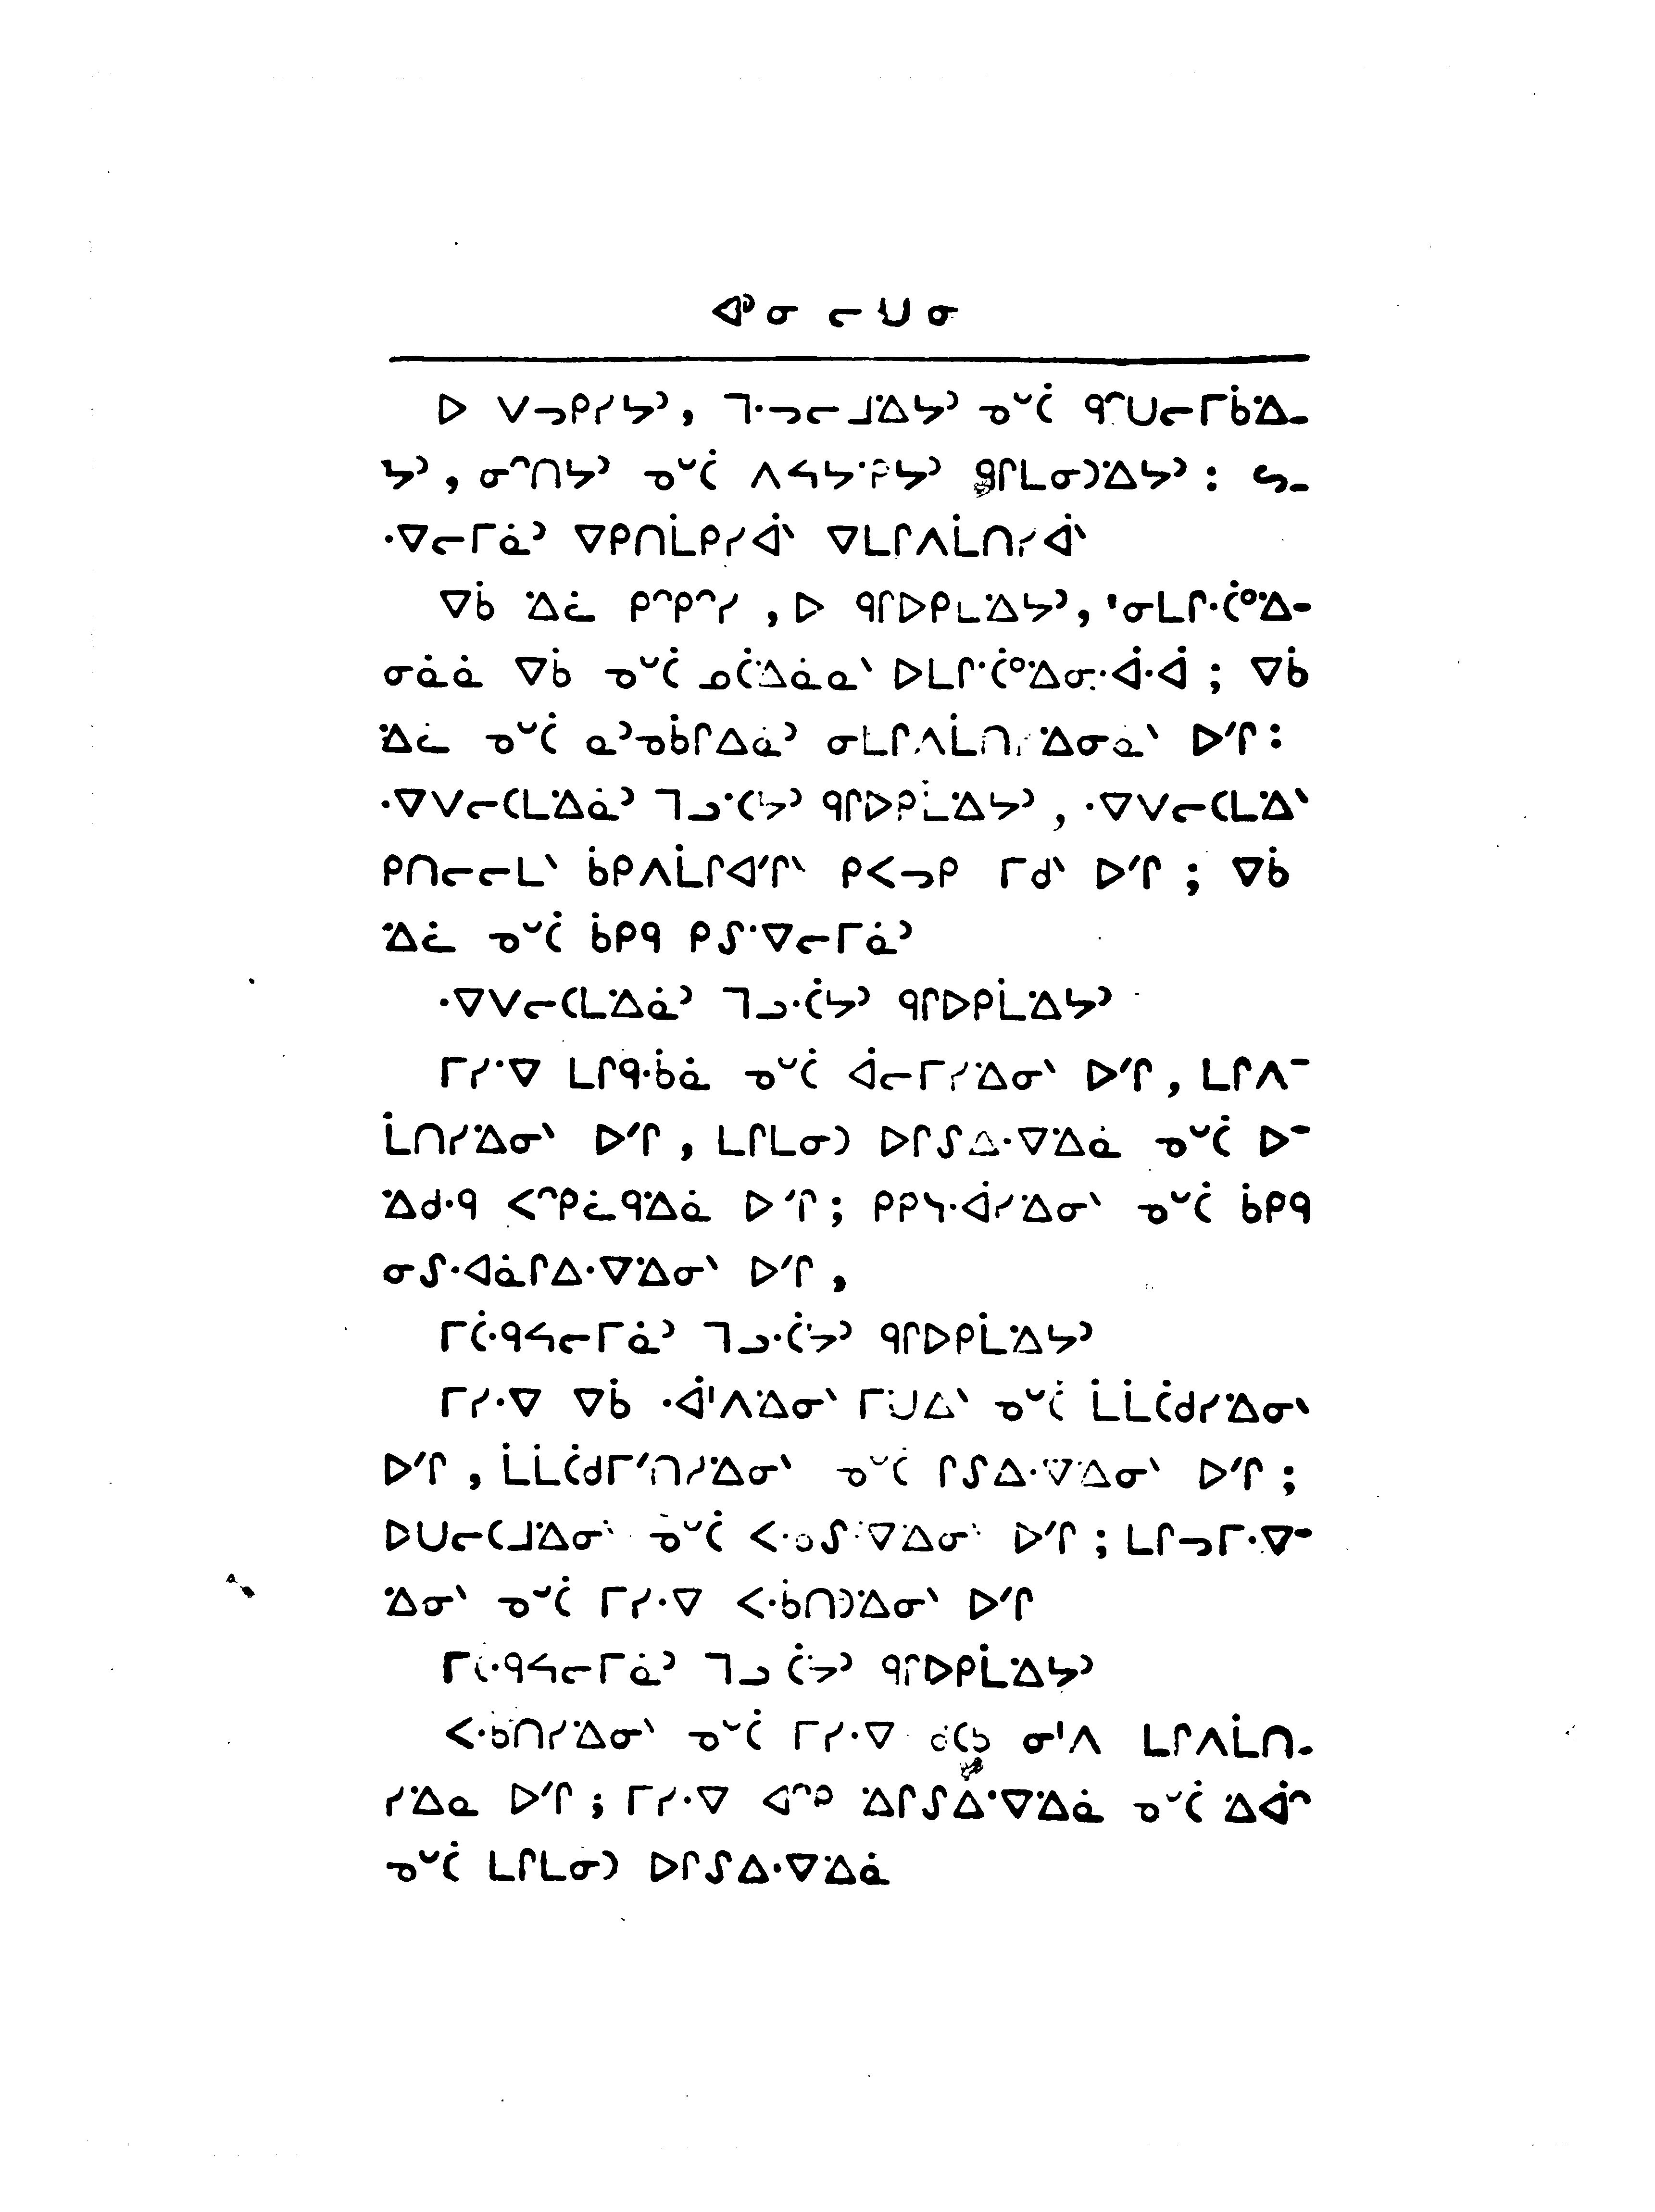 ᐊᐣᓂ ᓕᑌᓂ
ᐅ ᐯᓓᑭᓯᔭᐣ, ᒣᐧᓓᓕᒧᐏᔭᐣ ᓀᐡᑖ ᑫᐢᑌᓕᒥᑳᐏ-
ᔭᐣ, ᓂᐢᑎᔭᐣ ᓀᐡᑖ ᐱᓴᔭᐧᑭᔭᐣ ᑫᒋᒪᓂᑐᐏᔭᐣ : ᔕ-
ᐧᐁᓕᒥᓈᐣ ᐁᑭᑎᒫᑭᓯᐋᐠ ᐁᒪᒋᐱᒫᑎᓯᐋᐠ
ᐁᑳ ᐏᓛ ᑭᐢᑭᐢᓯ, ᐅ ᑫᒋᐅᑭᒪᐏᔭᐣ, ᑊᓂᒪᒋᐧᑖᐤᐏ-
ᓂᓈᓈ ᐁᑳ ᓀᐡᑖ ᓄᑖᐏᓈᓇᐠ ᐅᒪᒋᐧᑖᐤᐏᓂᐧᐋᐧᐋ ; ᐁᑳ
ᐏᓛ ᓀᐡᑖ ᓇᐣᓀᑳᒋᐃᓈᐣ ᓂᒪᒋᐱᒫᑎᓯᐏᓂᓇᐠ ᐅᐦᒋ :
ᐧᐁᐯᓕᑕᒪᐏᓈᐣ ᒣᓗᐧᑕᔭᐣ ᑫᒋᐅᑭᒫᐏᔭᐣ, ᐧᐁᐯᓕᑕᒪᐏᐠ
ᑭᑎᓕᓕᒪᐠ ᑳᑭᐱᒫᒋᐊᐦᒋᐠ ᑭᐸᓓᑭ ᒥᑯᐠ ᐅᐦᒋ ; ᐁᑳ
ᐏᓛ ᓀᐡᑖ ᑳᑭᑫ ᑭᔑᐧᐁᓕᒥᓈᐣ
ᐧᐁᐯᓕᑕᒪᐏᓈᐣ ᒣᓗᐧᑖᔭᐣ ᑫᒋᐅᑭᒫᐏᔭᐣ
ᒥᓯᐧᐁ ᒪᒋᑫᐧᑳᓈ ᓀᐡᑖ ᐋᓕᒥᓯᐏᓂᐠ ᐅᐦᒋ, ᒪᒋᐱ-
ᒫᑎᓯᐏᓂᐠ ᐅᐦᒋ, ᒪᒋᒪᓂᑐ ᐅᒋᔑᐃᐧᐁᐏᓈ ᓀᐡᑖ ᐅ-
ᐏᑯᐧᑫ ᐸᐢᑭᓛᑫᐏᓈ ᐅᐦᒋ ; ᑭᑭᓭᐧᐋᓯᐏᓂᐠ ᓀᐡᑖ ᑳᑭᑫ
ᓂᔑᐧᐊᓈᒋᐃᐧᐁᐏᓂᐠ ᐅᐦᒋ,
ᒥᑖᐧᑫᓴᓕᒥᓈᐣ ᒣᓗᐧᑖᔭᐣ ᑫᒋᐅᑭᒫᐏᔭᐣ
ᒥᓯᐧᐁ ᐁᑳ ᐧᐋᑊᐱᐏᓂᐠ ᒥᑌᐃᐠ ᓀᐡᑖ ᒫᒫᑖᑯᓯᐏᓂᐠ
ᐅᐦᒋ, ᒫᒫᑖᑯᒥᐦᑎᓱᐏᓂᐠ ᓀᐡᑖ ᒋᔑᐃᐧᐁᐏᓂᐠ ᐅᐦᒋ ;
ᐅᑌᓕᑕᒧᐏᓂᐠ ᓀᐡᑖ ᐸᐧᓄᔑᐧᐁᐏᓂᐠ ᐅᐦᒋ ; ᒪᒋᓓᒥᐧᐁ-
ᐏᓂᐠ ᓀᐡᑖ ᒥᓯᐧᐁ ᐸᐧᑳᑎᑐᐏᓂᐠ ᐅᐦᒋ
ᒥᑖᐧᑫᓴᓕᒥᓈᐣ ᒣᓗᑖᔭᐣ ᑫᒋᐅᑭᒫᐏᔭᐣ
ᐸᐧᑳᑎᓯᐏᓂᐠ ᓀᐡᑖ ᒥᓯᐧᐁ ᑯᑕᑲ ᓂᑊᐱ ᒪᒋᐱᒫᑎ-
ᓯᐏᓇ ᐅᐦᒋ ; ᒥᓯᐧᐁ ᐊᐢᑭ ᐏᒋᔑᐃᐧᐁᐏᓈ ᓀᐡᑖ ᐏᐋᐢ
ᓀᐡᑖ ᒪᒋᒪᓂᑐ ᐅᒋᔑᐃᐧᐁᐏᓈ